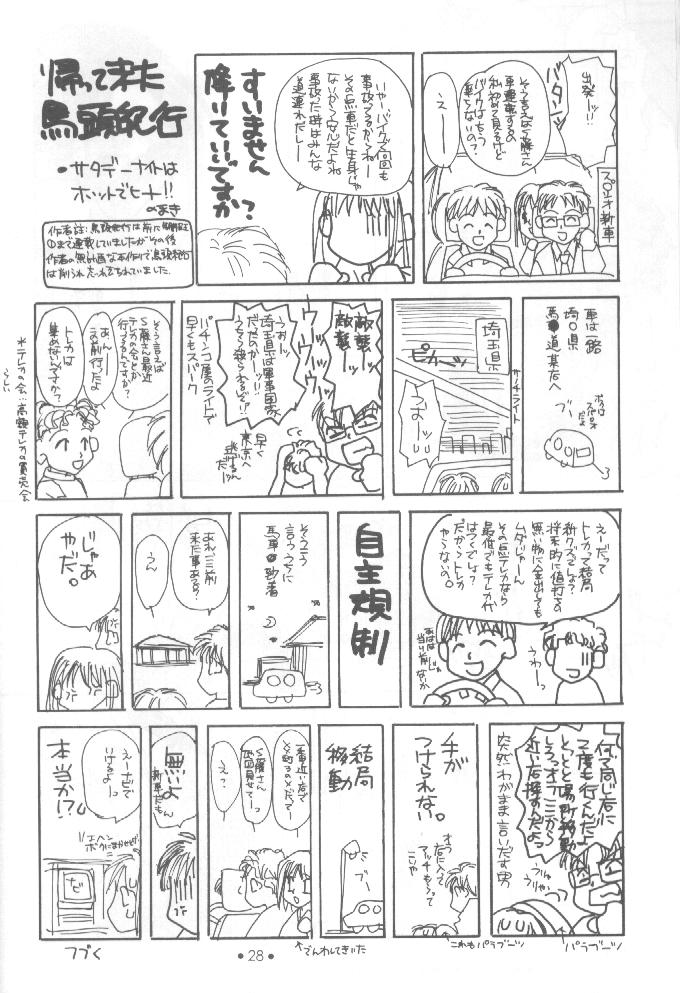 帰って来た
馬頭紀行
・サタデーナイトは
ホットでヒート!!
のまき
出発ーッ!!
バターン
そういえばS藤さん
車運転するの
私初めて見るけど
バイクはもう
乗らないの?
えー
スポ□オ新車
いやーバイクで何回も
事故ってるからねー
その点車だと生身じゃ
ないから安心だよね
事故った時はみんな
道連れだしー
すいません
降りていいですか?
車は一路
埼□県
馬□道某店へ
ボクは
スポ□オ
だよ
ブー
埼玉県
ピカーッ
サーチライト
うおーッ
敵襲ー
敵襲ー
ウウウーッ
うおーッ
埼玉県は軍事国家
だったのかーッ!!
うちら殺られるぞ!!
早く
東京へ
逃げるんだ
パチンコ屋のライトで
早くもスパーク
そう言えば
S藤さん最近
テレカの会とか
行ってるんですか?
あーん
え前行ったよ
トレカは
集めないんですか?
*テレカの会…高額テレカの買売会
らしい
えーだって
トレカって結局
紙クズでしょ?
将来的に値打ちの
無い物に金出しても
ムダじゃーん
その点テレカなら
最低でもテレカ代
はつくでしょ?
だからトレカ
やらないの。
あはは
当り前じゃ
ないか
うわーっ
自主規制
そう言う
うちに
馬車□到着
あれ?ここ前
来た事ある?
うん
じゃあ
やだ。
何で同じ店に
2度も行くんだよー
とっとと場所移動
しろっオラここから
近い店探すんだよっ
突然わがまま言いだす男
うりゃ
うりゃっ
パラブーツ
手が
つけられない。
オラ
店に入って
アッチもらって
こいや
これもパラブーツ
結局
移動
ブー
一番近い店で
××町の×だってー
S藤さん
地図見せてーっ
え?
でんわしてきいた
無いよ
新車だもん
えーっ缶で
いけるよーっ
本当か!?
エヘン
ボクにまかせなさい
つづく
・28・